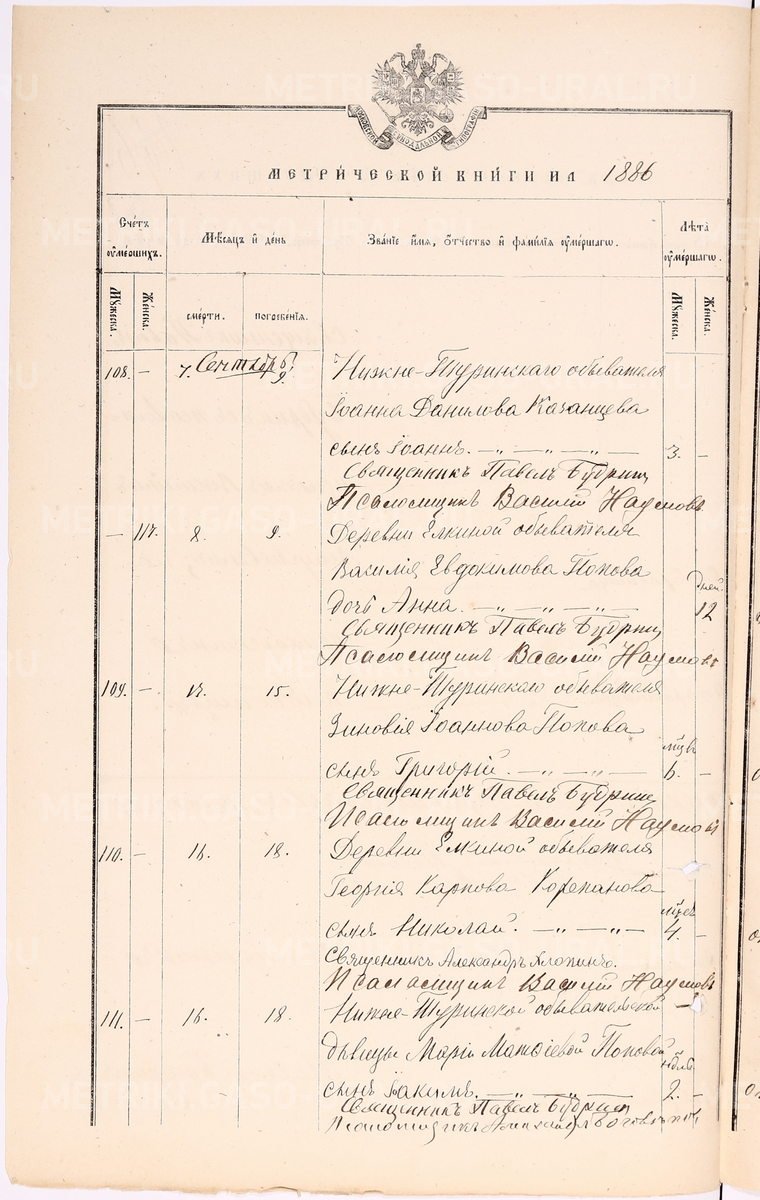 METRIKI.GASO-URAL.RU
МЕТРИ́ЧЕСКОЙ КНИ́ГИ НА 1886
Сче́тъ ᲂу҆ме́ршихъ.
Мѣ́сѧцъ и҆ де́нь
Зва́нїе и҆́мѧ, ѻ҆́тчество и҆ фами́лїѧ ᲂу҆ме́ршагѡ.
Лѣ́та ᲂу҆ме́ршагѡ.
Мꙋ́жеска.
Же́нска.
сме́рти.
погребе́нїѧ.
Мꙋ́жеска.
Же́нска.
Сентябрь
108. — 7. 9. Нижне-Туринскаго обывателя
Іоанна Данилова Казанцева
сынъ Іоаннъ. — „ — „ — „ — 3. —
Священникъ Павелъ Будрин
Псаломщикъ Василій Наумовъ
— 117. 8. 9. Деревни Елкиной обывателя
Василія Евдокимова Попова
дней
дочь Анна. — „ — „ — „ — 12
Священникъ Павелъ Будрин
Псаломщикъ Василій Наумовъ
109. — 15. Нижне-Туринскаго обывателя
Зиновія Іоаннова Попова
мѣцъ
сынъ Григорій. — „ — „ — 6. —
Священникъ Павелъ Будрин
Псаломщикъ Василій Наумовъ
110. — 16. 18. Деревни Елкиной обывателя
Георгія Карпова Корепанова
мѣсъ
сынъ Николай. — „ — „ — 4. —
Священникъ Александръ Хлопинъ.
Псаломщикъ Василій Наумовъ
111. — 16. 18. Нижне-Туринской обывательской —
дѣвицы Маріи Матѳіевой Поповой
сынъ Іакимъ. — „ — „ — 2. —
Священникъ Павелъ Будрин